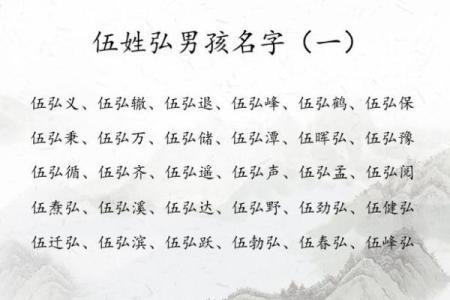 伍姓弘男孩名字（一）
伍弘义、伍弘辙、伍弘退、伍弘峰、伍弘鹤、伍弘保
伍弘秉、伍弘万、伍弘储、伍弘潭、伍晖弘、伍弘豫
伍弘循、伍弘齐、伍弘遥、伍弘声、伍弘孟、伍弘阅
伍焘弘、伍弘溪、伍弘达、伍弘野、伍劲弘、伍健弘
伍迁弘、伍弘滨、伍弘跃、伍勃弘、伍春弘、伍峰弘